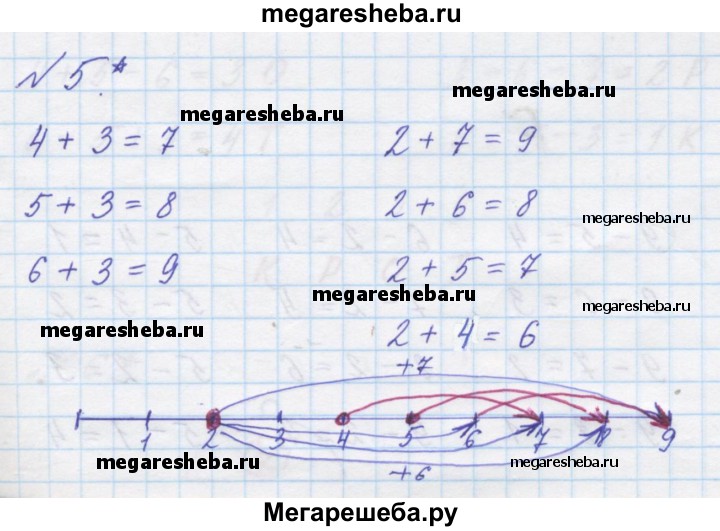 megaresheba.ru
№ 5*
megaresheba.ru
megaresheba.ru
4 + 3 = 7
2 + 7 = 9
5 + 3 = 8
2 + 6 = 8
megaresheba.ru
6 + 3 = 9
2 + 5 = 7
megaresheba.ru
megaresheba.ru
megaresheba.ru
2 + 4 = 6
+7
1 2 3 4 5 6 7 8 9
megaresheba.ru
+6
megaresheba.ru
Мегарешеба.ру